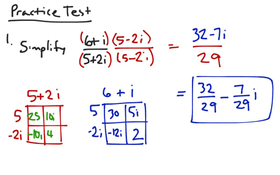 Practice Test
1. Simplify (6+i)/(5+2i) (5-2i)/(5-2i) = (32-7i)/29
= 32/29 - 7/29 i
5+2i
5 25 10i
-2i -10i 4
6 + i
5 30 5i
-2i -12i 2